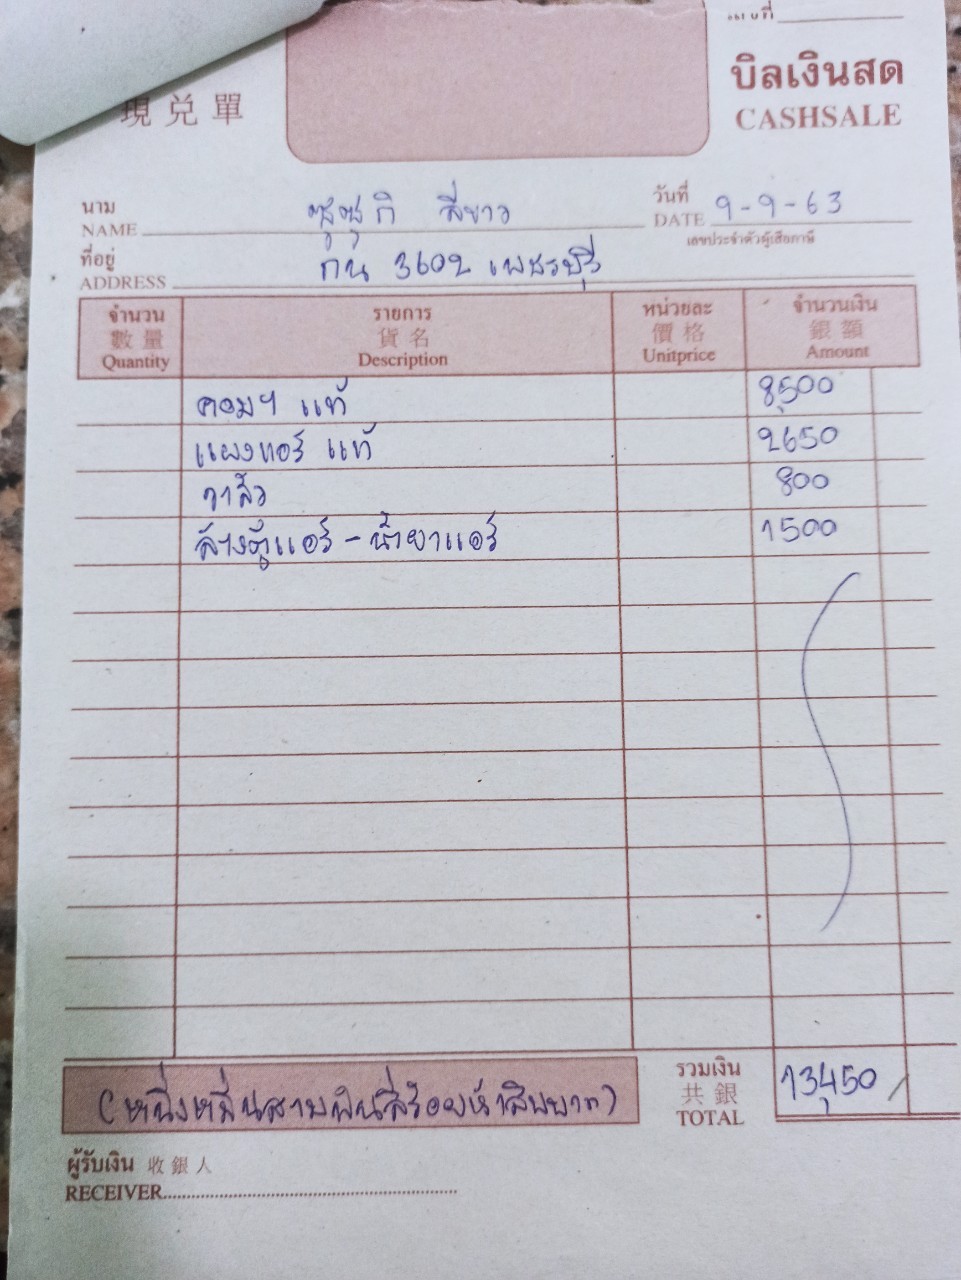 บิลเงินสด
現兑單 CASHSALE
นาม NAME ซูซูกิ สีขาว วันที่ DATE 9-9-63
เลขประจำตัวผู้เสียภาษี
ที่อยู่ ADDRESS กน 3602 เพชรบุรี
จำนวน รายการ หน่วยละ จำนวนเงิน
數量 貨名 價格 銀額
Quantity Description Unitprice Amount
คอมฯ แท้ 8,500
แผงแอร์ แท้ 2650
วาล์ว 800
ล้างตู้แอร์ - น้ำยาแอร์ 1500
รวมเงิน
共銀
TOTAL 13,450
(หนึ่งหมื่นสามพันสี่ร้อยห้าสิบบาท)
ผู้รับเงิน 收銀人
RECEIVER